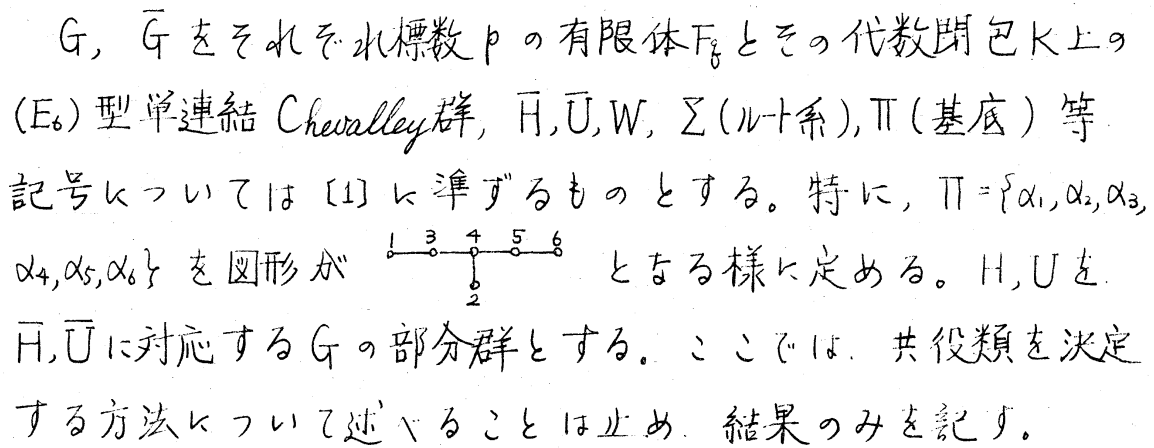 G, G̅ をそれぞれ標数 p の有限体 F_q とその代数閉包 K 上の
(E₆) 型単連結 Chevalley群, H̅, U̅, W, Σ (ルート系), Π (基底) 等
記号については [1] に準ずるものとする。特に, Π = {α₁, α₂, α₃,
α₄, α₅, α₆} を図形が 1 3 4 5 6 2 となる様に定める。H, U を
H̅, U̅ に対応する G の部分群とする。ここでは 共役類を決定
する方法について述べることは止め 結果のみを記す。